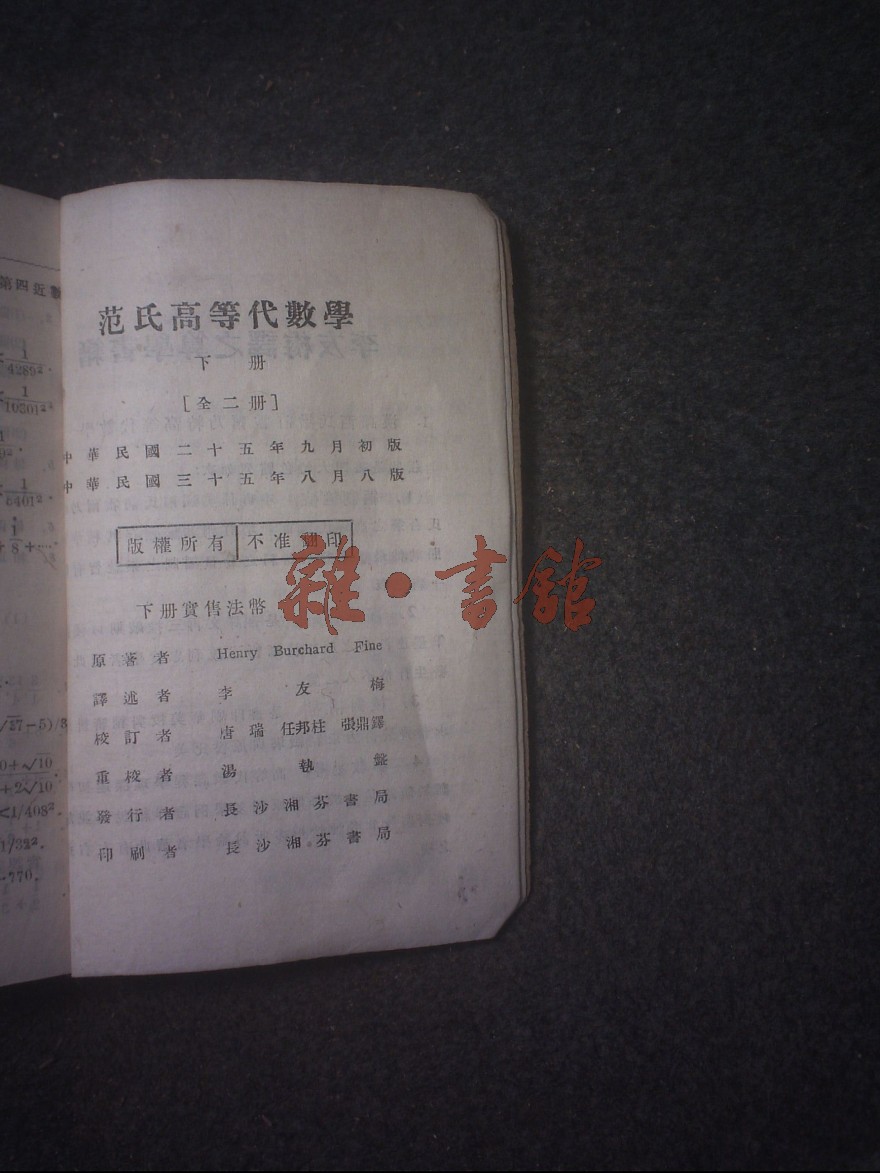 第四近數
1/4289².
1/10301²
1/6401²
1/8+....
√27-5)/8
0+√10
+2√10
<1/408²
1/32².
-770.
范氏高等代數學
下册
[全二册]
中華民國二十五年九月初版
中華民國三十五年八月八版
版權所有 不准翻印
下册實售法幣
雜·書館
原著者 Henry Burchard Fine
譯述者 李友梅
校訂者 唐瑞 任邦柱 張鼎鐸
重校者 湯執盤
發行者 長沙湘芬書局
印刷者 長沙湘芬書局